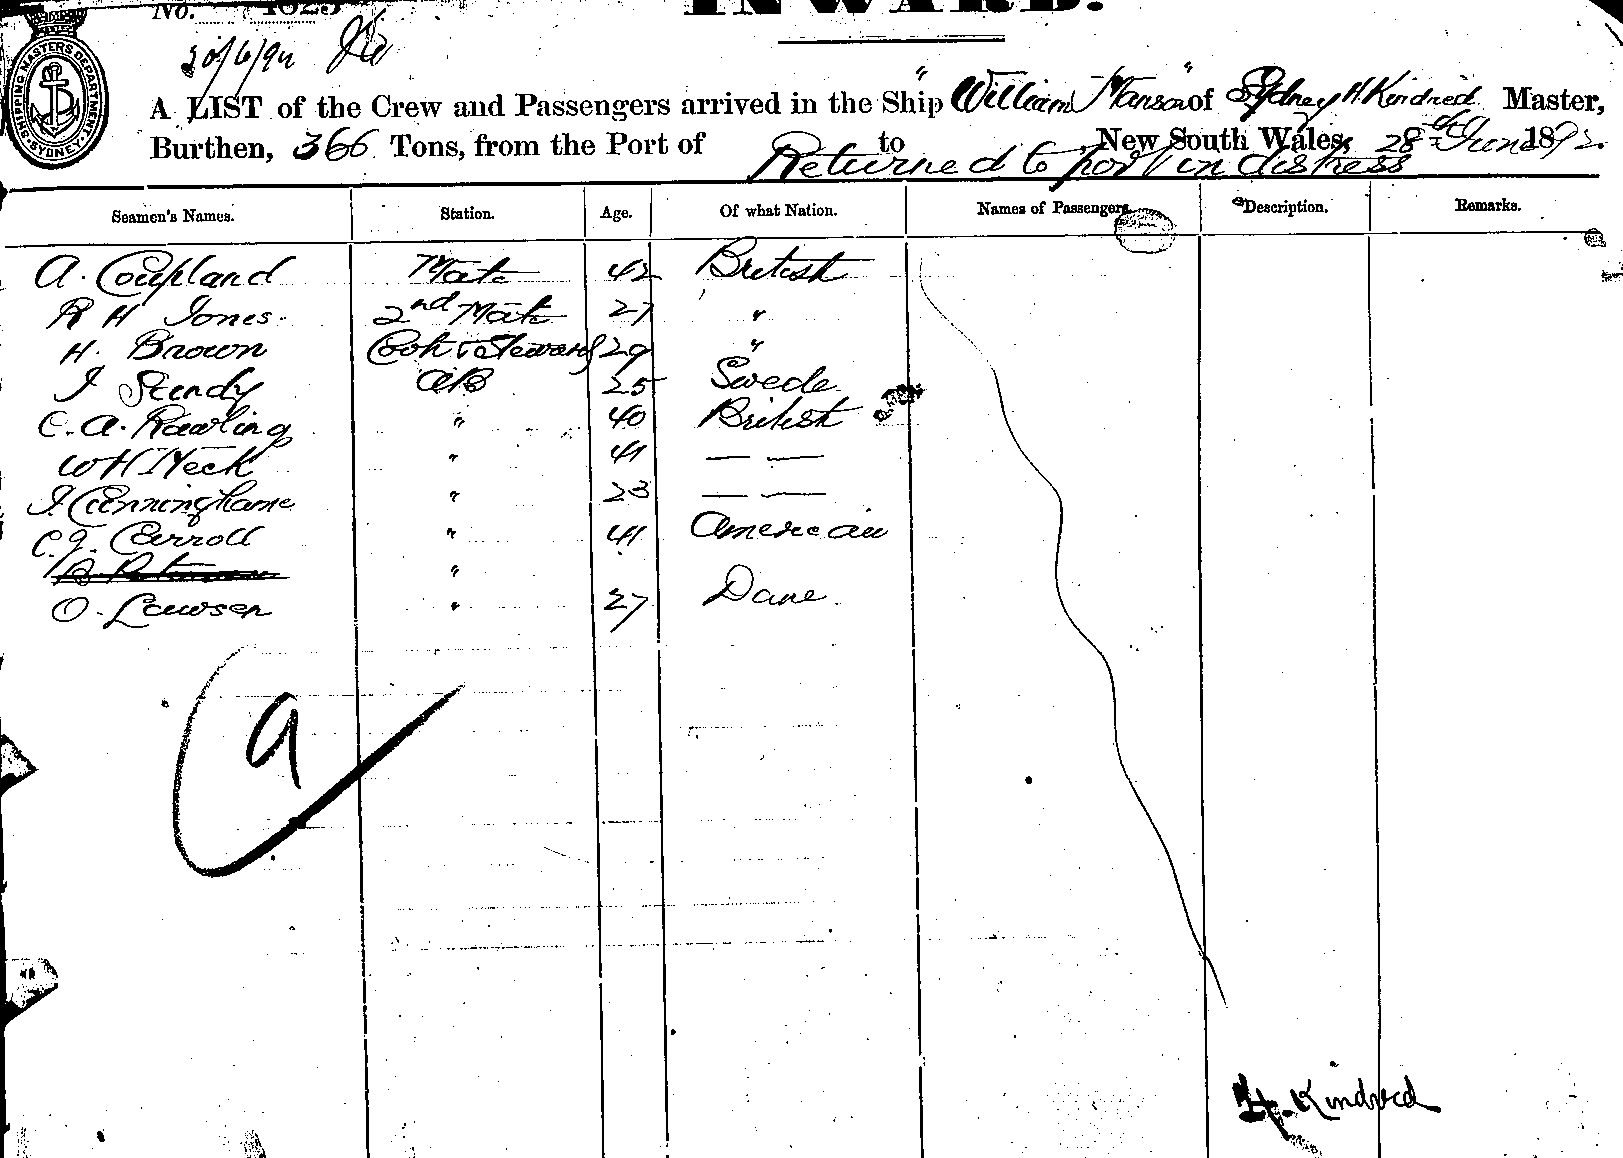 INWARD.
No.
SHIPPING MASTERS DEPARTMENT SYDNEY
A LIST of the Crew and Passengers arrived in the Ship "William Manson" of Sydney H. Kindred Master,
Burthen, 366 Tons, from the Port of to New South Wales, 28th June 1892.
Returned to port in distress
Seamen's Names. Station. Age. Of what Nation. Names of Passengers. Description. Remarks.
A. Coupland Mate 42 British
R H Jones. 2nd Mate 27 "
H. Brown Cook & Steward 29 "
J Stendy AB 25 Swede
C. A. Rawling " 40 British
W H Heck " 41 — —
J. Cunninghame " 23 — —
C. J. Carroll " 41 American
"
O. Lawsen " 27 Dane
9
H. Kindred